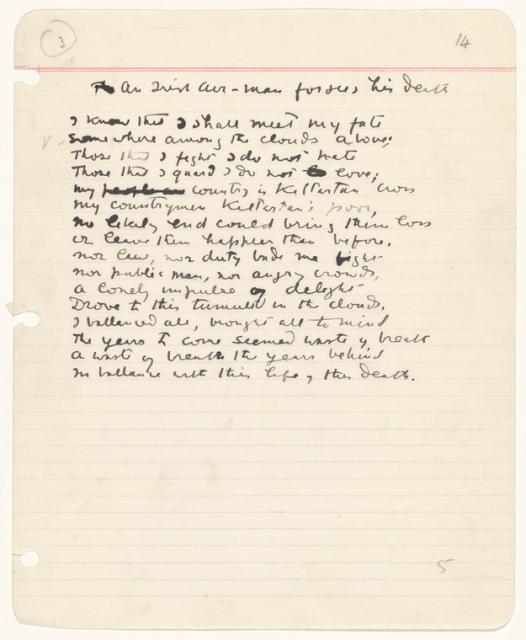 3
14
An Irish air-man forsees his death
I know that I shall meet my fate
Somewhere among the clouds above;
Those that I fight I do not hate
Those that I guard I do not love;
my country is Kiltartan Cross
my countrymen Kiltartan's poor,
no likely end could bring them loss
or leave them happier than before.
nor law, nor duty bade me fight
nor public man, nor angry crowds,
a lonely impulse of delight
Drove to this tumult in the clouds.
I ballanced all, brought all to mind
The years to come seemed waste of breath
a waste of breath the years behind
In ballance with this life, this death.
5